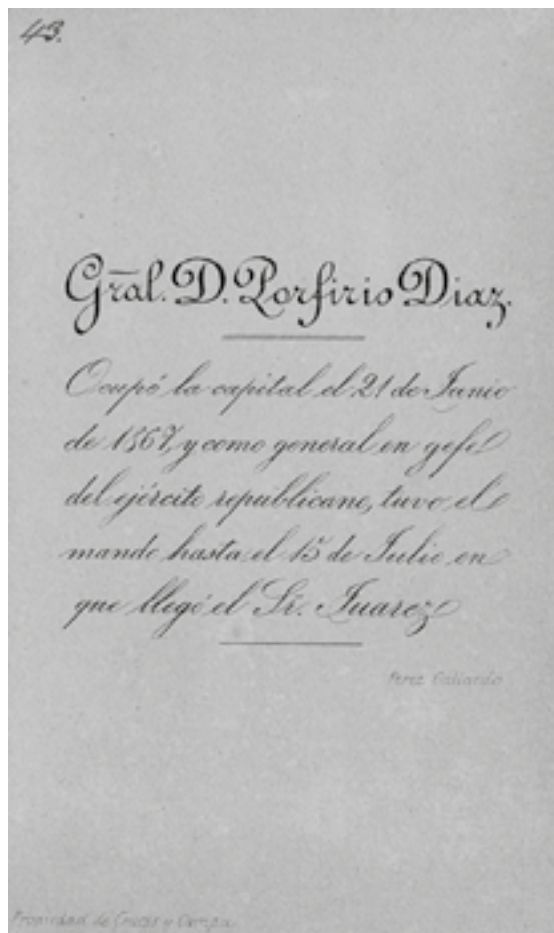 43.
Gral. D. Porfirio Diaz.
Ocupó la capital el 21 de Junio
de 1867, y como general en gefe
del ejército republicano, tuvo el
mando hasta el 15 de Julio en
que llegó el Sr. Juarez
Perez Gallardo
Propiedad de Cruces y Campa.